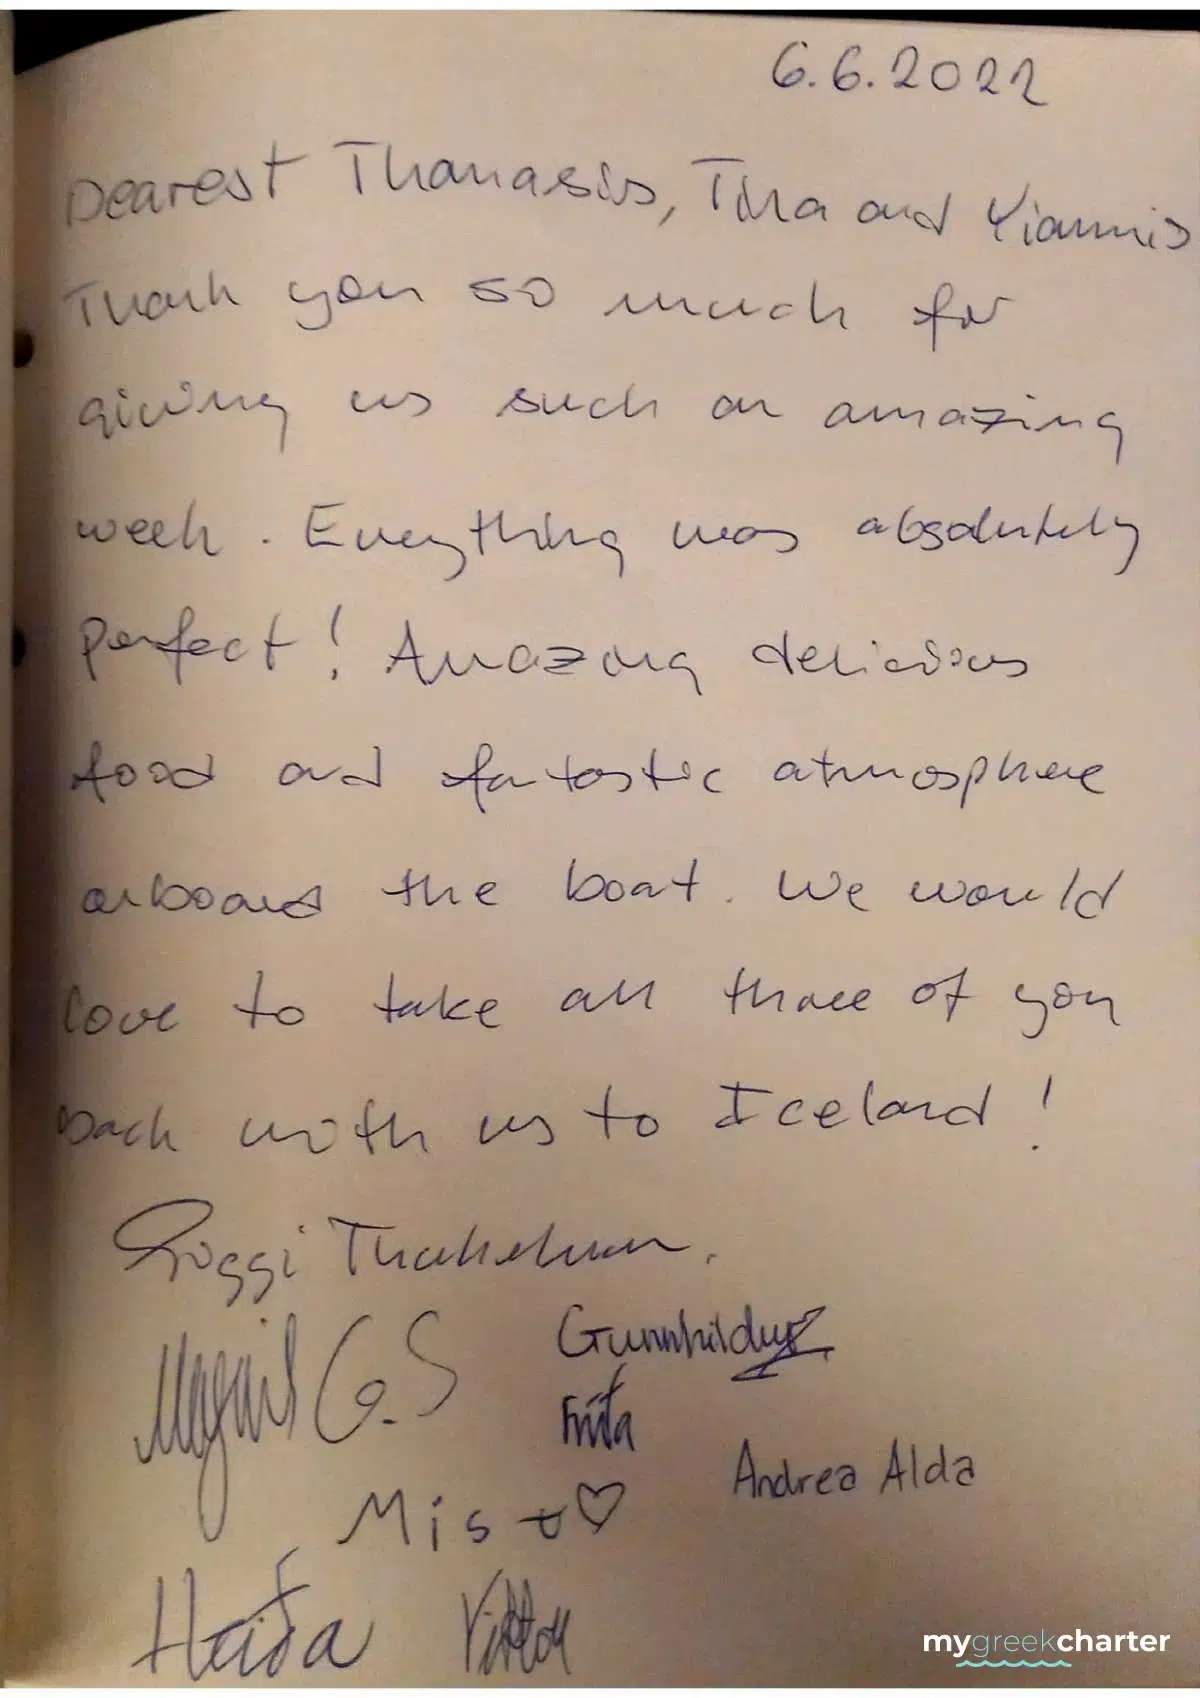 6.6.2022
Dearest Thanasis, Tina and Yiannis
Thank you so much for
giving us such an amazing
week. Everything was absolutely
perfect! Amazing delicious
food and fantastic atmosphere
onboard the boat. We would
love to take all three of you
back with us to Iceland!
Siggi
G.S
Gunnhildur
Fríða
Andrea Alda
Mist ♡
Heiða Viktor
mygreekcharter